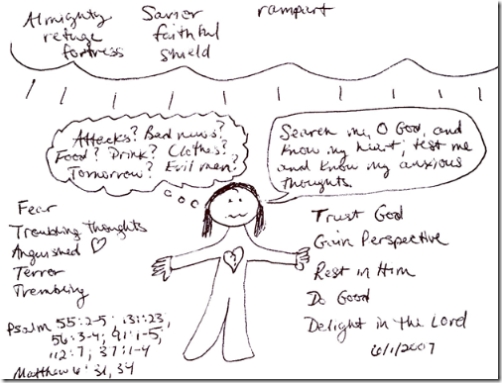 Almighty
refuge
fortress
Savior
faithful
shield
rampart
Attacks? Bad news?
Food? Drink? Clothes?
Tomorrow? Evil men?
Search me, O God, and
know my heart; test me
and know my anxious
thoughts.
Fear
Troubling thoughts
Anguished
Terror
Trembling
Psalm 55:2-5; 139:23,
56:3-4; 91:1-5,
112:7; 37:1-4
Matthew 6:31, 34
?
Trust God
Gain Perspective
Rest in Him
Do Good
Delight in the Lord
6/1/2007